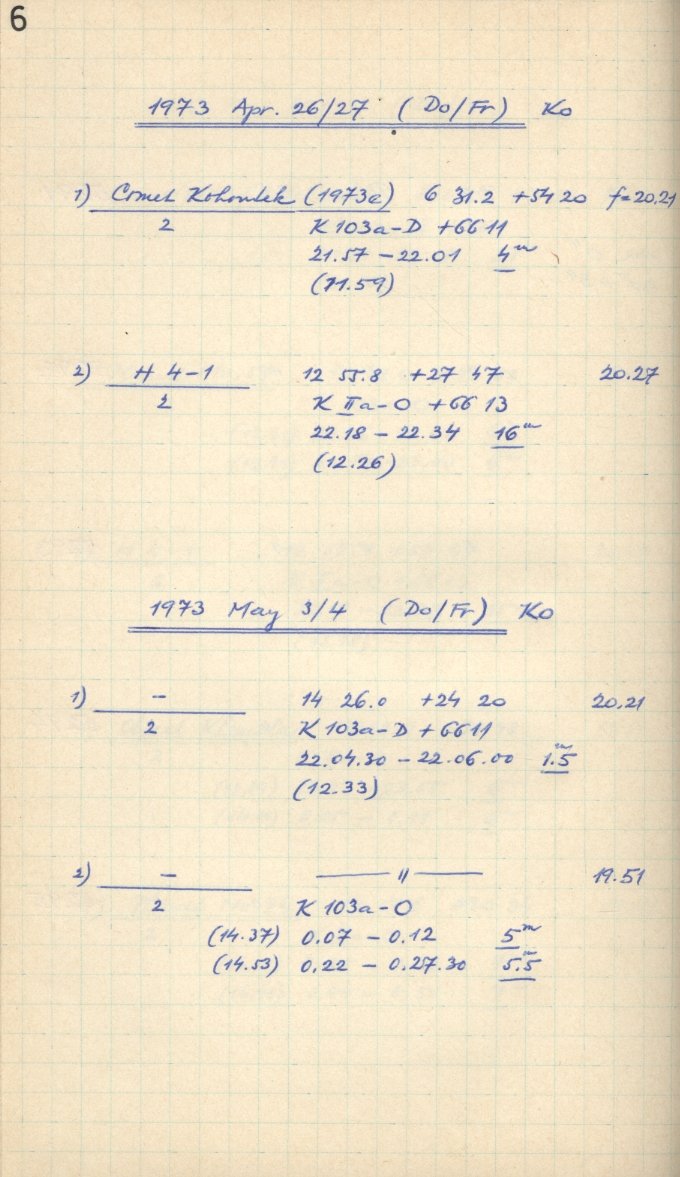 6
1973 Apr. 26/27 (Do/Fr) Ko
1) Comet Kohoutek (1973e) 6 31.2 +54 20 f=20.21
2 K 103a-D +GG 11
21.57 - 22.01 4m
(11.59)
2) H 4-1 12 55.8 +27 47 20.27
2 K IIa-O +GG 13
22.18 - 22.34 16m
(12.26)
1973 May 3/4 (Do/Fr) Ko
1) - 14 26.0 +24 20 20.21
2 K 103a-D +GG 11
22.04.30 - 22.06.00 1.5m
(12.33)
2) - — 〃 — 19.51
2 K 103a-O
(14.37) 0.07 - 0.12 5m
(14.53) 0.22 - 0.27.30 5.5m